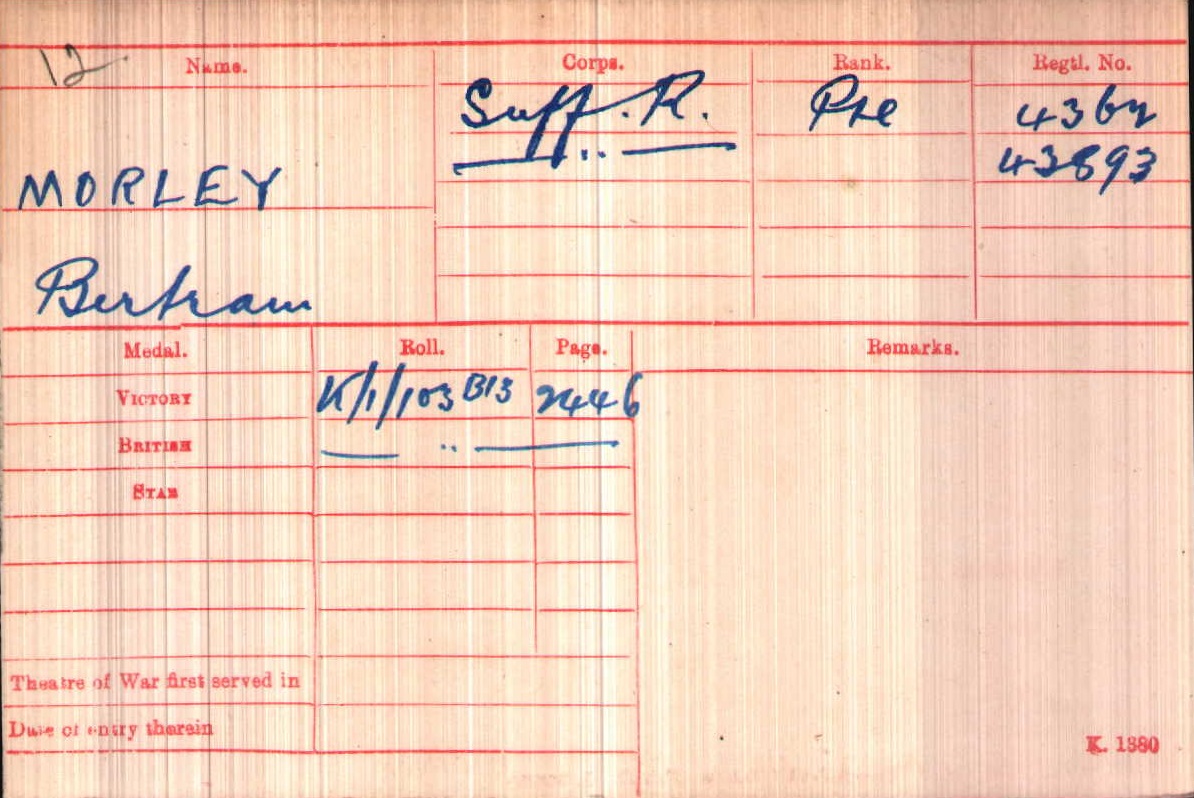 12
Name. Corps. Rank. Regtl. No.
Suff. R. Pte
MORLEY — .. — 43893
Bertram
Medal. Roll. Page. Remarks.
VICTORY K/1/103 B13 2446
BRITISH — .. —
STAR
Theatre of War first served in
Date of entry therein
K. 1380